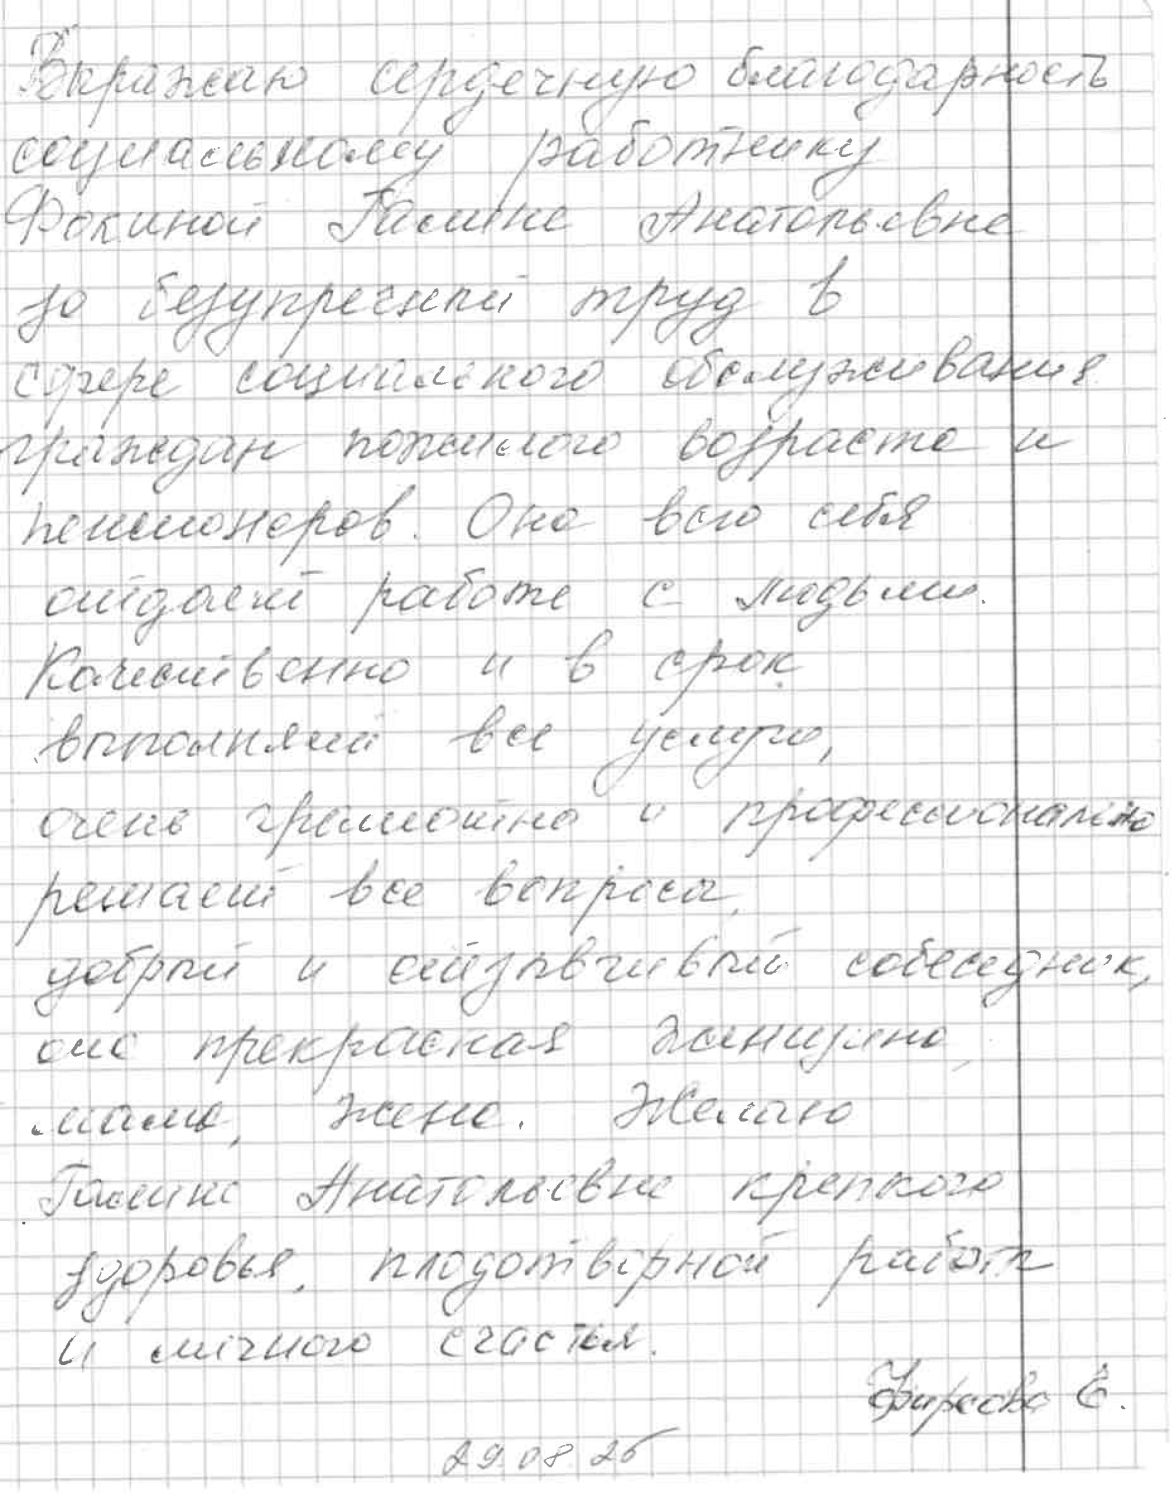 Выражаю сердечную благодарность
социальному работнику
Фокиной Галине Анатольевне
за безупречный труд в
сфере социального обслуживания
граждан пожилого возраста и
пенсионеров. Она всю себя
отдает работе с людьми.
Качественно и в срок
выполняет все услуги,
очень грамотно и профессионально
решает все вопросы,
добрый и отзывчивый собеседник,
она прекрасная женщина,
мама, жена. Желаю
Галине Анатольевне крепкого
здоровья, плодотворной работы
и личного счастья.
Фирсова Е.
29.08.25